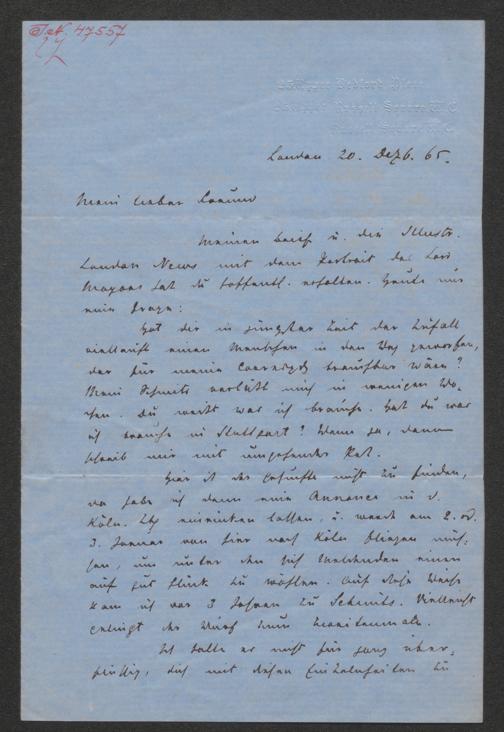 London 20. Dezb. 65.
Mein lieber Freund
Meinen Brief u. die Illustr.
London News mit dem Portrait des Lord
Mayors hat du hoffentl. erhalten. Heute nur
eine Frage:
Hat dir in jüngster Zeit der Zufall
vielleicht einen Menschen in den Weg geworfen,
der für meine brauchbar wäre?
Mein Schmits verläßt mich in wenigen Wo-
chen. Du weißt was ich brauche. Hat du was
ich brauche in Stuttgart? Wenn ja, dann
bleib mir mit umgehender Rat.
Hier ist das Gesuchte nicht zu finden,
da habe ich denn eine Annonce in d.
Köln. Ztg einrücken lassen, u. werde am 2. od.
3. Januar von hier nach Köln fliegen müs-
sen, um unter den sich Meldenden einen
auf gut Glück zu wählen. Auf diese Weise
kam ich vor 3 Jahren zu Schmits. Vielleicht
gelingt der Wurf zum zweitenmale.
Ich halte es nicht für ganz über-
flüssig, dich mit diesen Einzelheiten zu